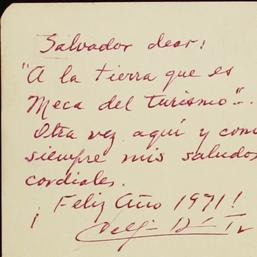 Salvador dear:
"A la tierra que es
Meca del Turismo"..
Otra vez aquí y com
siempre mis saludos
cordiales.
¡Feliz Año 1971!